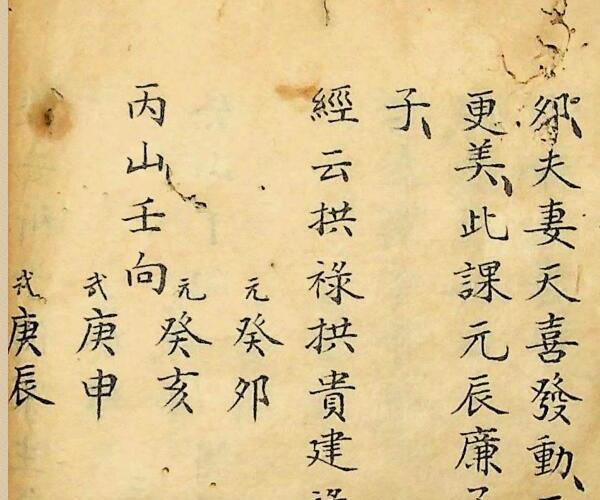 卯夫妻天喜發動
更美此課元辰廉
子
經云拱祿拱貴建
元癸卯
元癸亥
丙山壬向
弍庚申
弍庚辰